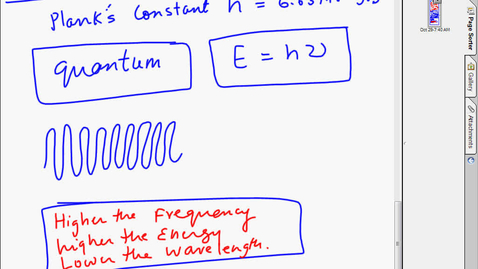 Plank's constant h = 6.63
quantum
E = hν
Higher the Frequency
higher the Energy
Lower the Wavelength.
Oct 28-7:40 AM
Page Sorter
Gallery
Attachments